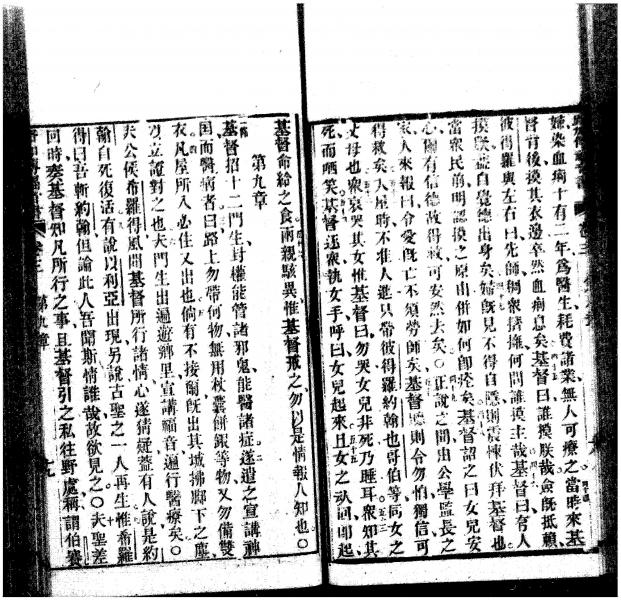 婦染血痾十有二年爲醫生耗費諸業無人可療之當時來基
督背後摸其衣邊卒然血痾息矣基督曰誰摸朕哉僉旣抵賴
彼得羅與左右曰先師稠衆擠擁何問誰摸主哉基督曰有人
摸朕蓋自覺德出身矣婦旣見不得自隱則震悚伏拜基督也
當衆民前明認摸之原由併如何卽痊矣基督詔之曰女兒安
心爾有信德故得救可安然去矣正說之間出公學監長之
家人來報曰令愛旣亡不須勞師矣基督聽則令勿怕獨信可
得救矣入屋時不准人進只帶彼得羅約翰也哥伯等同女之
父母也衆哀哭其女惟基督曰勿哭女兒非死乃睡耳衆知其
死而哂笑基督逐衆執女手呼曰女兒起來且女之𣲖回卽起
基督命給之食兩親駭異惟基督戒之勿以是情報人知也
第九章
基督招十二門生封權能管諸邪鬼能醫諸症遂遣之宣講神
國而醫病者曰路上勿帶何物無用杖囊餅銀等物又勿備雙
衣凡屋所入必住又出也倘有不接爾旣出其城拂脚下之塵
以立證對之也夫門生出遍遊鄉里宣講福音遍行醫療矣
夫公候希羅得風聞基督所行諸情心遂猜疑蓋有人說是約
翰自死復活有說以利亞出現另說古聖之一人再生惟希羅
得曰吾斬約翰但論此人吾聞斯情誰哉故欲見之夫聖差
回時奏基督知凡所行之事且基督引之私往野處稱謂伯賽
第九章
十九